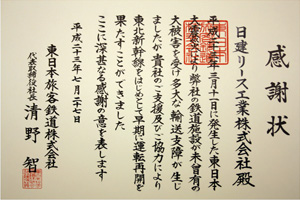 感謝状
日建リース工業株式会社殿
平成二十三年三月十一日に発生した東日本
大震災により弊社の鉄道施設が未曾有の
大被害を受け多大な輸送支障が生じ
ましたが貴社のご支援及びご協力により
東北新幹線をはじめとし早期に運転再開を
果たすことができました
ここに深甚なる感謝の意を表します
平成二十三年七月二十七日
東日本旅客鉄道株式会社
代表取締役社長 清野 智